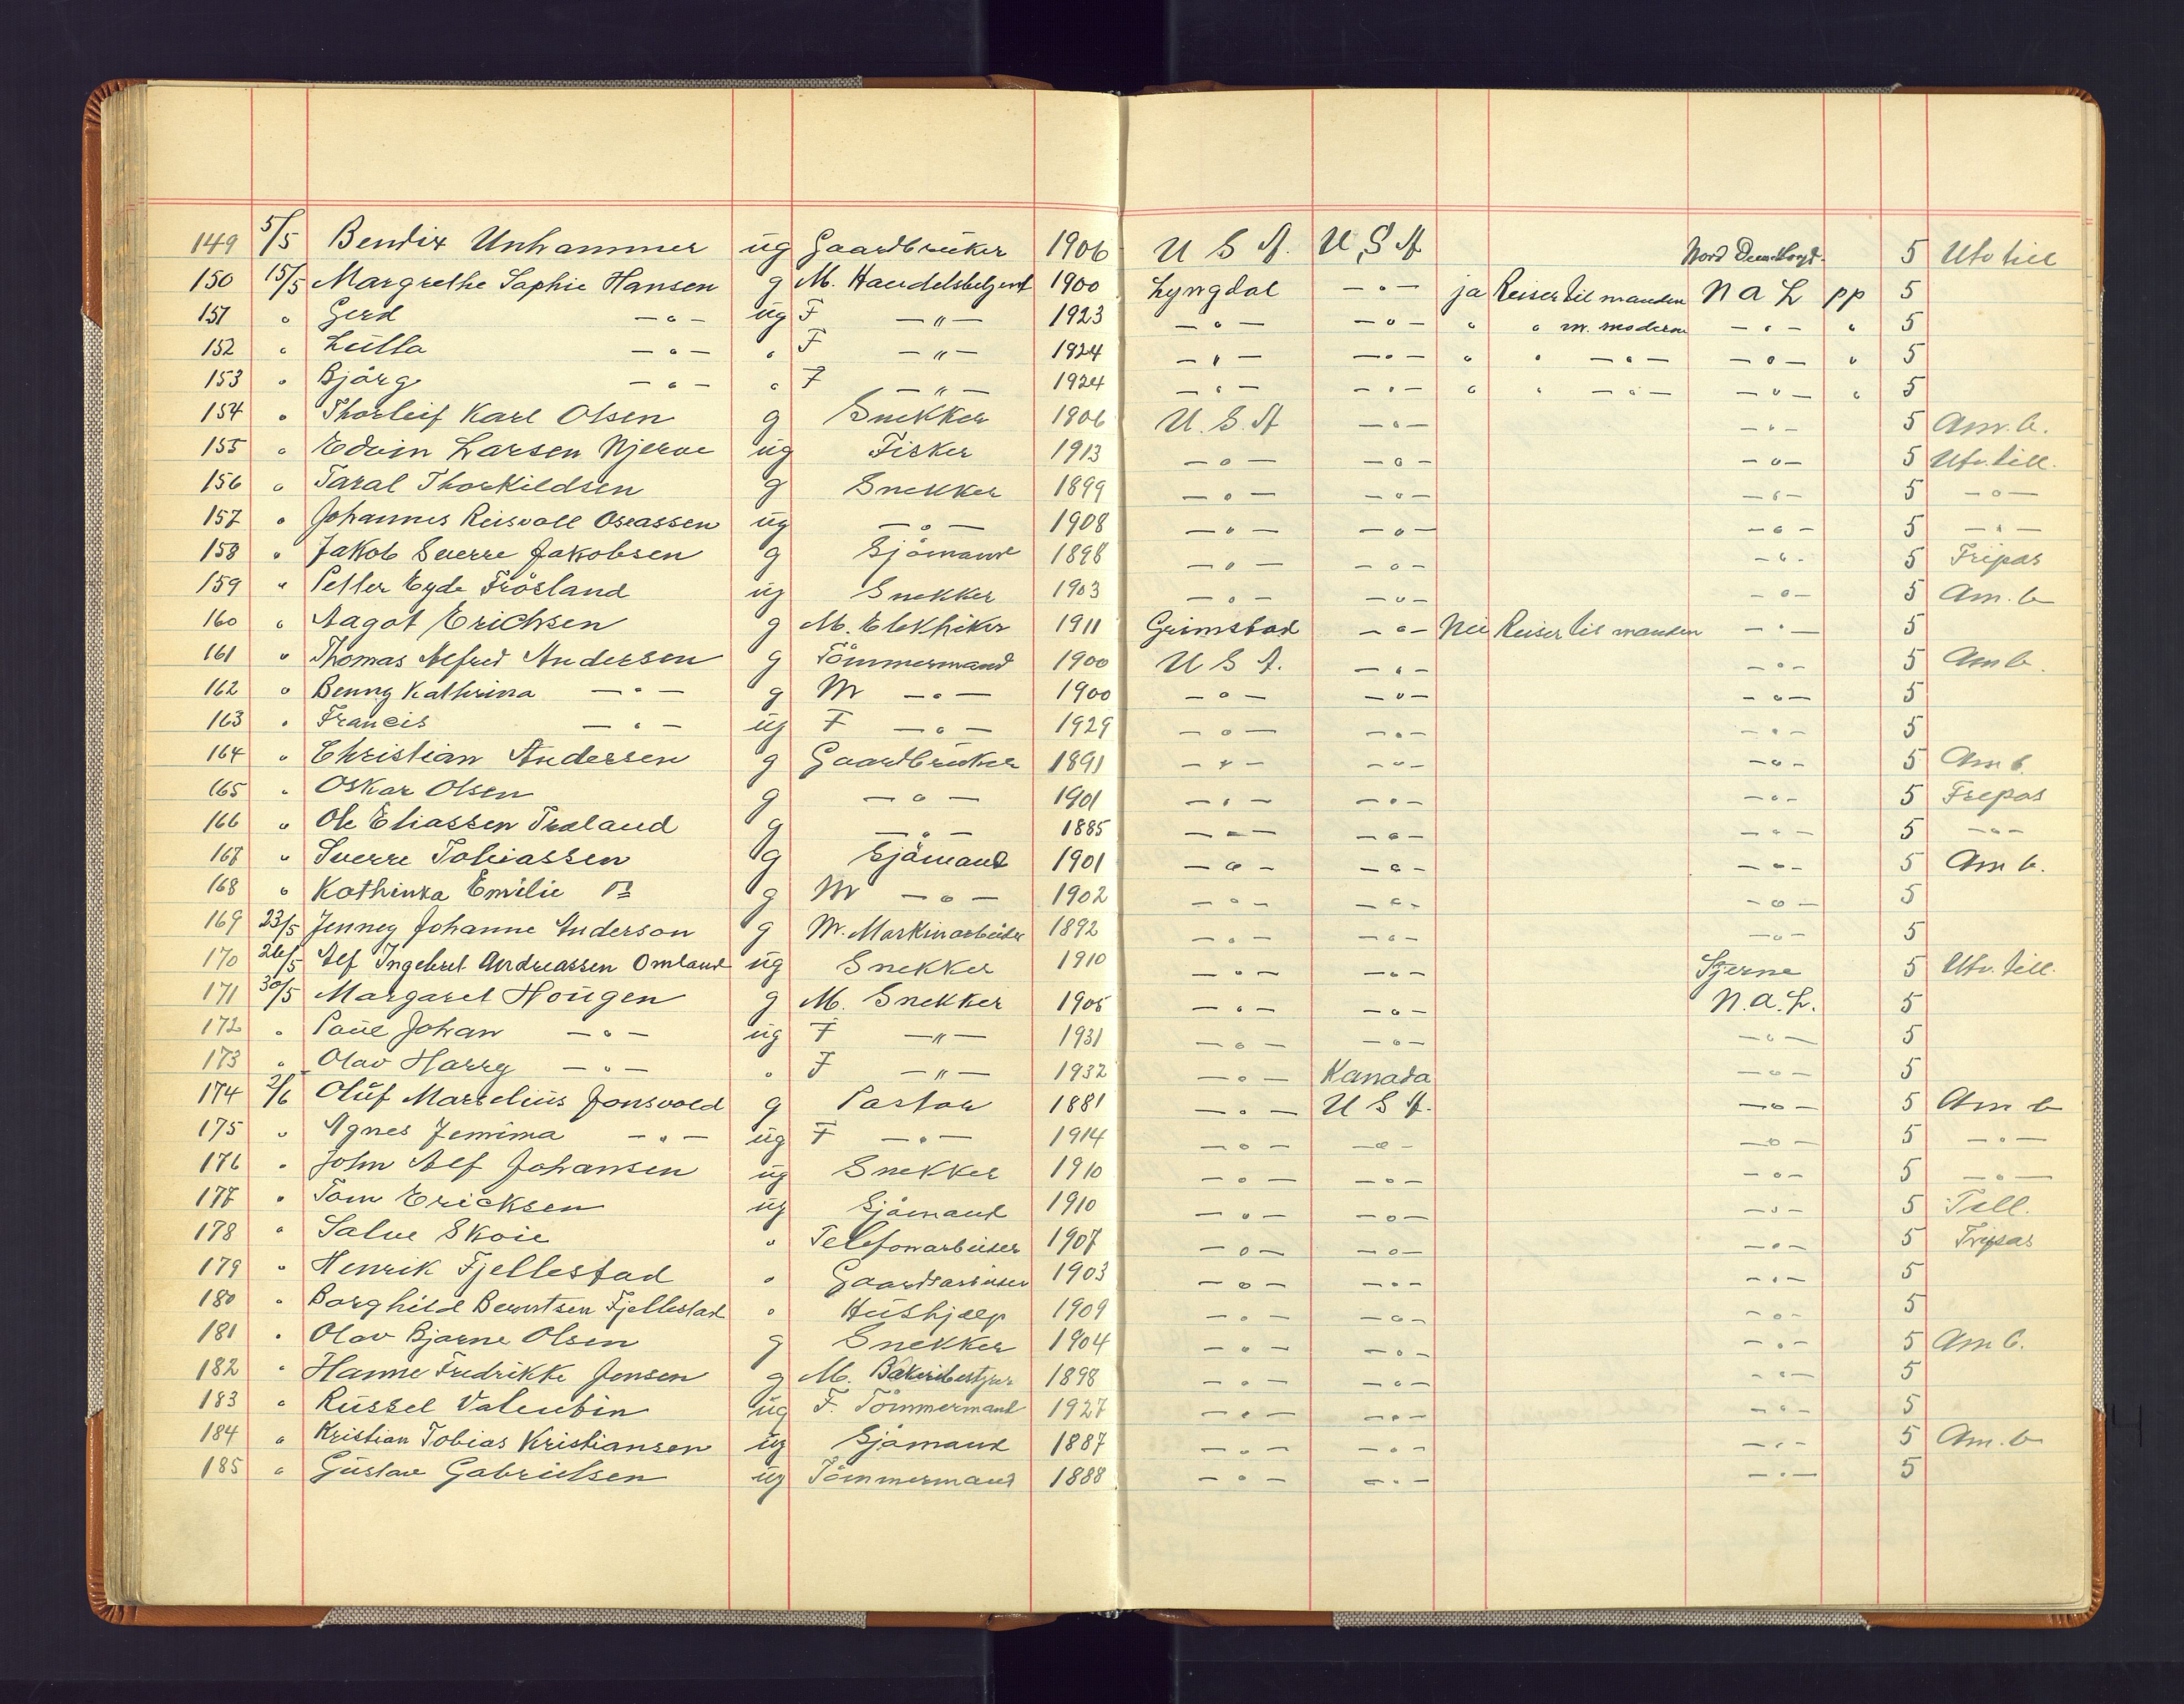 149 5/5 Bendix Unhammer ug Gaardbruker 1906 U S A. U S A 5 Utv till
150 15/5 Margrethe Sophie Hansen g M. Handelsbetjent 1900 Lyngdal —"— ja Reiser til manden N A L pp 5
151 " Gerd —"— ug F —"— 1923 —"— —"— " " m. moderen —"— " 5
152 " Lulla —"— " F —"— 1924 —"— —"— " " —"— —"— " 5
153 " Bjørg —"— " F —"— 1924 —"— —"— " " —"— —"— " 5
154 " Thorleif Karl Olsen g Snekker 1906 U. S. A —"— —"— 5 Am. b.
155 " Edvin Larsen Njerve ug Fisker 1913 —"— —"— —"— 5 Utv. till.
156 " Taral Thorkildsen g Snekker 1899 —"— —"— —"— 5 —"—
157 " Johannes Reisvoll Oseassen ug —"— 1908 —"— —"— —"— 5 —"—
158 " Jakob Sverre Jakobsen g Sjømand 1898 —"— —"— —"— 5 Fripas
159 " Petter Eyde Frösland ug Snekker 1903 —"— —"— —"— 5 Am. b
160 " Aagot Erichsen g M. Elektriker 1911 Grimstad —"— Nei Reiser til manden —"— 5
161 " Thomas Alfred Andersen g Tömmermand 1900 U S A. —"— —"— 5 Am b.
162 " Benny Kathrina —"— g M —"— 1900 —"— —"— —"— 5
163 " Francis —"— ug F —"— 1929 —"— —"— —"— 5
164 " Christian Andersen g Gaardbruker 1891 —"— —"— —"— 5 Am b.
165 " Oskar Olsen g —"— 1901 —"— —"— —"— 5 Fripas
166 " Ole Eliassen Træland g —"— 1885 —"— —"— —"— 5 —"—
167 " Sverre Tobiassen g Sjömand 1901 —"— —"— —"— 5 Am b.
168 " Kathinka Emilie g M —"— 1902 —"— —"— —"— 5
169 23/5 Jenney Johanne Anderson g M. Maskinarbeider 1892 —"— —"— —"— 5
170 26/5 Alf Ingebret Andreassen Omland ug Snekker 1910 —"— —"— Stjerne 5 Utv. till.
171 30/5 Margaret Hougen g M. Snekker 1905 —"— —"— N. A. L. 5
172 " Paul Johan —"— ug F —"— 1931 —"— —"— —"— 5
173 " Olav Harry —"— " F —"— 1932 —"— Kanada —"— 5
174 2/6 Oluf Marselius Jonsvold g Pastor 1881 —"— U S A. —"— 5 Am b
175 " Agnes Jemima —"— ug F —"— 1914 —"— —"— —"— 5 —"—
176 " John Alf Johansen ug Snekker 1910 —"— —"— —"— 5 —"—
177 " Tom Ericksen ug Sjömand 1910 —"— —"— —"— 5 Till.
178 " Salve Skoie " Telefonarbeider 1907 —"— —"— —"— 5 Fripas
179 " Henrik Fjellestad " Gaardsarbeider 1903 —"— —"— —"— 5
180 " Borghild Berntsen Fjellestad " Hushjælp 1909 —"— —"— —"— 5
181 " Olav Bjarne Olsen g Snekker 1904 —"— —"— —"— 5 Am b.
182 " Hanne Fredrikke Jensen g M. Bakeribestyrer 1898 —"— —"— —"— 5
183 " Russel Valentin ug F. Tömmermand 1927 —"— —"— —"— 5
184 " Kristian Tobias Kristiansen ug Sjömand 1887 —"— —"— —"— 5 Am. b
185 " Gustav Gabrielsen ug Tömmermand 1888 —"— —"— —"— 5